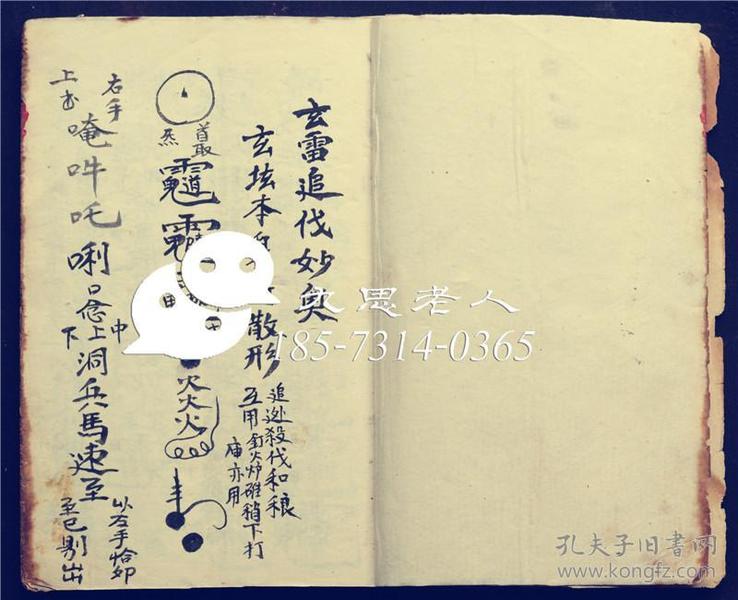 玄雷追伐妙奧
玄坛本
散形
追逊殺伐和穣
互用釘火炉碓稍下打
庙亦用
最
炁
火火火
右手
上书
唵吽吒唎
口念
上中下洞兵馬速至
以左手恰卯
至巳剔出
敏思老人
185-7314-0365
孔夫子旧書网
www.kongfz.com